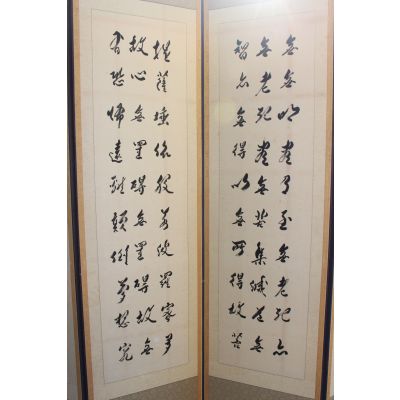 無無明盡乃至無老死亦
無老死盡無苦集滅道無
智亦無得以無所得故菩
提薩埵依般若波羅蜜多
故心無罣礙無罣礙故無
有恐怖遠離顛倒夢想究